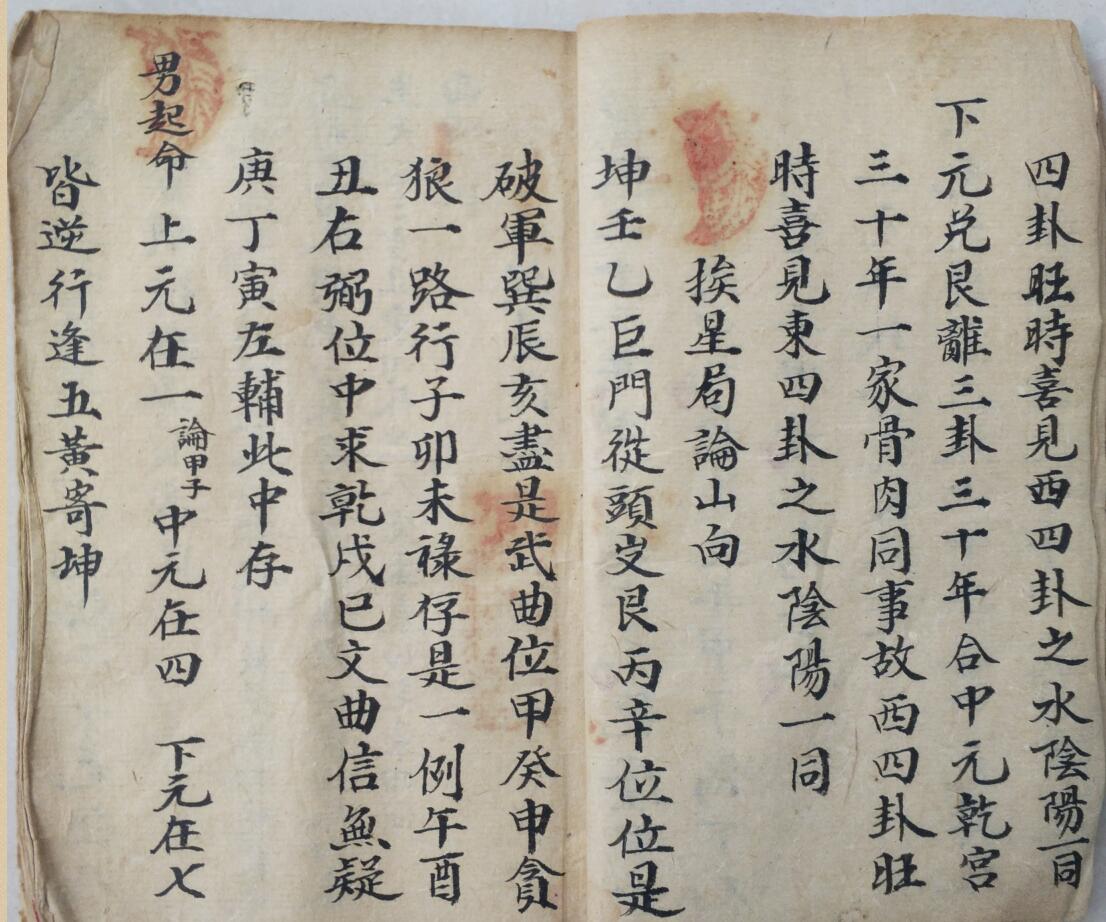 四卦旺時喜見西四卦之水陰陽一同
下元兑艮離三卦三十年合中元乾宮
三十年一家骨肉同事故西四卦旺
時喜見東四卦之水陰陽一同
挨星局論山向
坤壬乙巨門從頭出艮丙辛位位是
破軍巽辰亥盡是武曲位甲癸申貪
狼一路行子卯未禄存是一例午酉
丑右弼位中求乾戍巳文曲信無疑
庚丁寅左輔此中存
男起命 上元在一 論甲子 中元在四 下元在七
皆逆行逢五黃寄坤